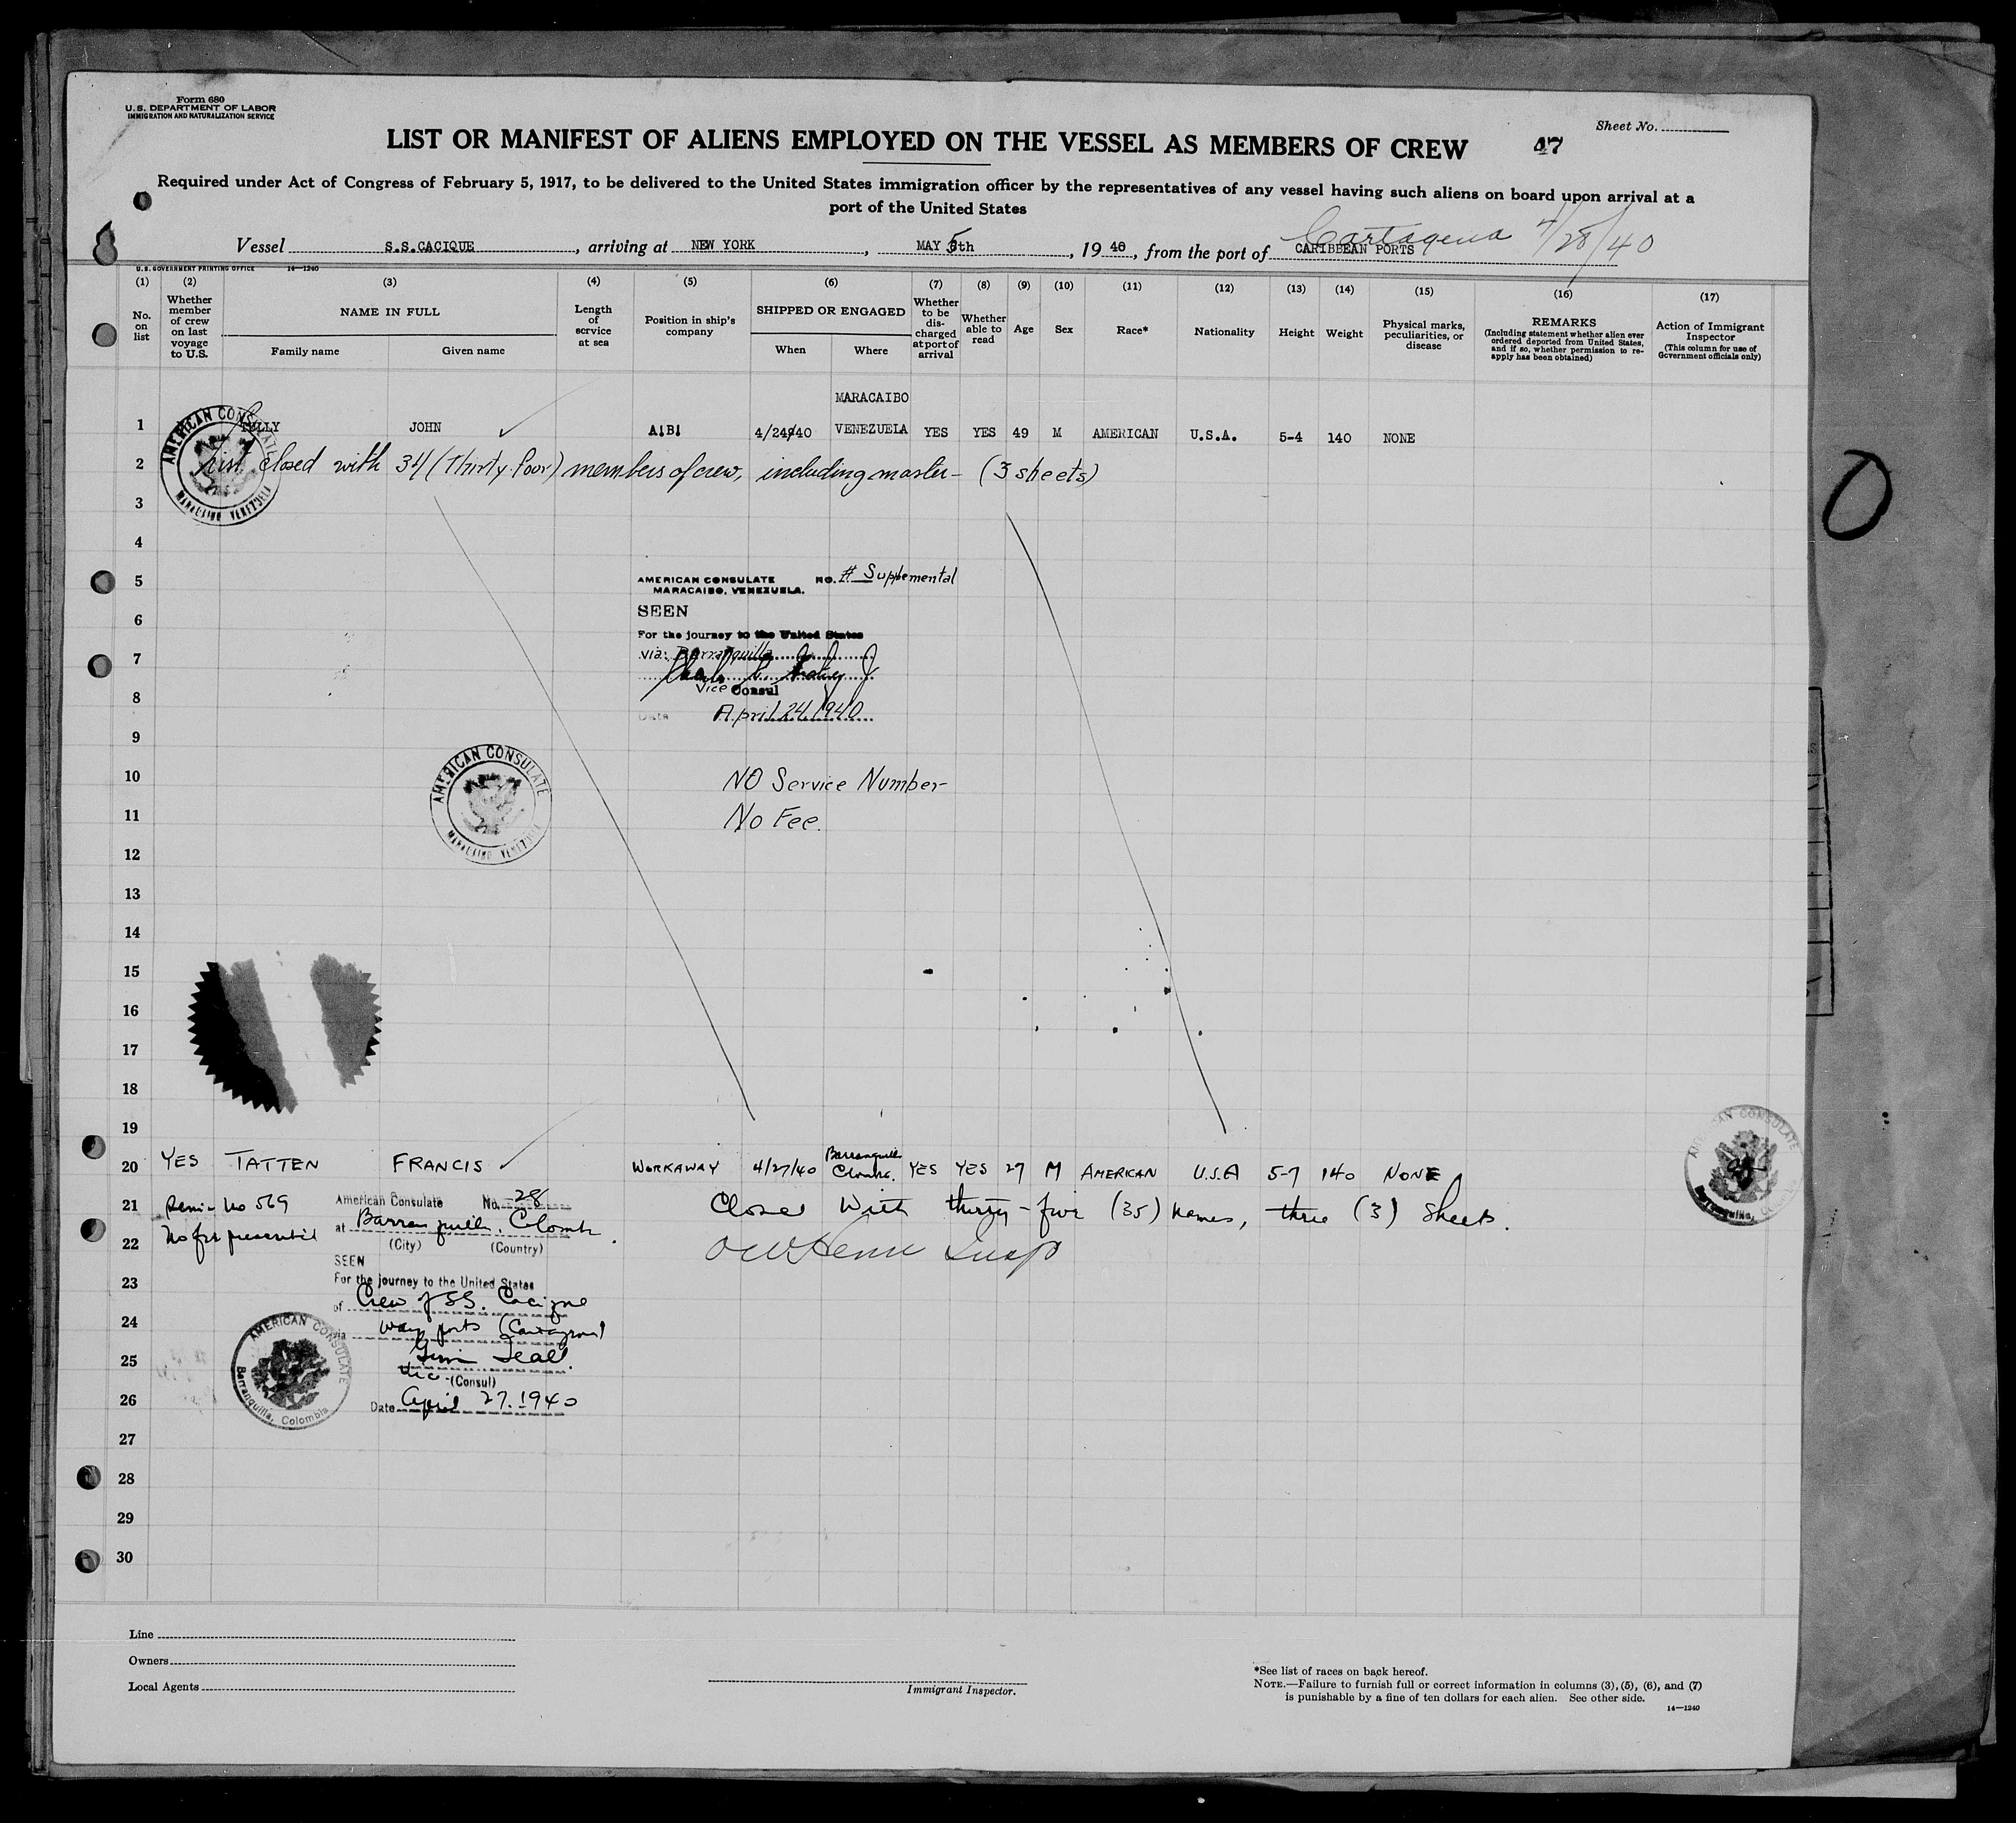 Form 680
U. S. DEPARTMENT OF LABOR
IMMIGRATION AND NATURALIZATION SERVICE
Sheet No.
LIST OR MANIFEST OF ALIENS EMPLOYED ON THE VESSEL AS MEMBERS OF CREW 47
Required under Act of Congress of February 5, 1917, to be delivered to the United States immigration officer by the representatives of any vessel having such aliens on board upon arrival at a
port of the United States
Cartagena 4/28/40
Vessel S.S.CACIQUE, arriving at NEW YORK, MAY 5th, 19 40, from the port of CARIBBEAN PORTS
U. S. GOVERNMENT PRINTING OFFICE 14—1240
(1) No. on list
(2) Whether member of crew on last voyage to U.S.
(3) NAME IN FULL
Family name Given name
(4) Length of service at sea
(5) Position in ship's company
(6) SHIPPED OR ENGAGED
When Where
(7) Whether to be discharged at port of arrival
(8) Whether able to read
(9) Age
(10) Sex
(11) Race*
(12) Nationality
(13) Height
(14) Weight
(15) Physical marks, peculiarities, or disease
(16) REMARKS
(Including statement whether alien ever ordered deported from United States, and if so, whether permission to re-apply has been obtained)
(17) Action of Immigrant Inspector
(This column for use of Government officials only)
MARACAIBO
1 JOHN A!B! 4/24/40 VENEZUELA YES YES 49 M AMERICAN U.S.A. 5-4 140 NONE
2 List closed with 34 (Thirty four) members of crew, including master - (3 sheets)
AMERICAN CONSULATE
MARACAIBO VENEZUELA
3
4
5
AMERICAN CONSULATE NO. # Supplemental
MARACAIBO, VENEZUELA.
6
SEEN
For the journey to the United States
7
via: Barranquilla
8
Vice Consul
Date April 24, 1940
9
10
NO Service Number
11
No Fee.
AMERICAN CONSULATE
MARACAIBO VENEZUELA
12
13
14
15
16
17
18
19
20 YES TATTEN FRANCIS WORKAWAY 4/27/40 Barranquilla YES YES 27 M AMERICAN U.S.A 5-7 140 NONE
21 No 569 American Consulate No. 28 Closed With thirty-five (35) names, three (3) Sheets.
at Barranquilla, Colombia
22 No fee prescribed
(City) (Country)
SEEN
23
For the journey to the United States
of Crew of SS. Cacique
24
via way ports (Cartagena)
25
(Consul)
26
Date April 27. 1940
AMERICAN CONSULATE
Barranquilla, Colombia
AMERICAN CONSULATE
Barranquilla, Colombia
27
28
29
30
Line
Owners
Local Agents
Immigrant Inspector.
*See list of races on back hereof.
NOTE.—Failure to furnish full or correct information in columns (3), (5), (6), and (7)
is punishable by a fine of ten dollars for each alien. See other side.
14—1240